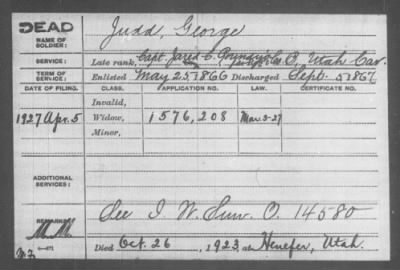 DEAD
NAME OF SOLDIER: Judd, George
SERVICE: Late rank, Capt. Jared C. Utah Cav.
TERM OF SERVICE: Enlisted May 25 1866 Discharged Sept. 5 1867
DATE OF FILING. CLASS. APPLICATION NO. LAW. CERTIFICATE NO.
Invalid,
1927 Apr. 5 Widow, 1576,208 Mar. 3-27
Minor,
ADDITIONAL SERVICES:
See I. W. Sur. O. 14580
REMARKS: M.M.
Died Oct. 26, 1923 at Henefer, Utah.